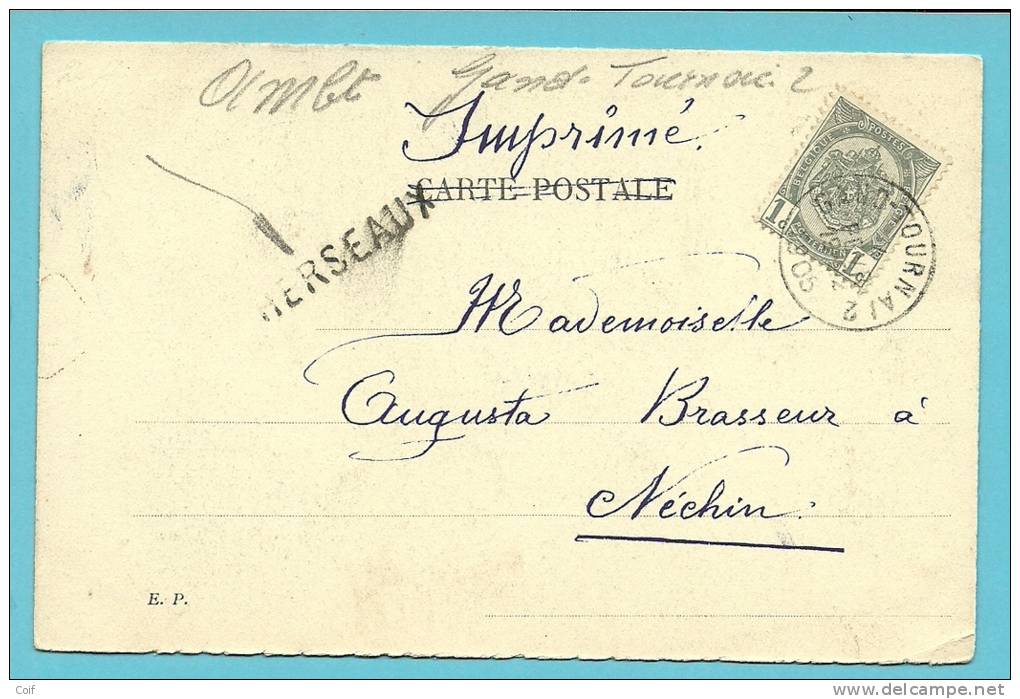 Ambt Gand-Tournai 2
Imprimé.
CARTE POSTALE
BELGIQUE POSTES
1c 1c
GAND-TOURNAI 2
05
HERSEAUX
Mademoiselle
Augusta Brasseur à
Néchin.
E. P.
Coif
http://www.delcampe.net